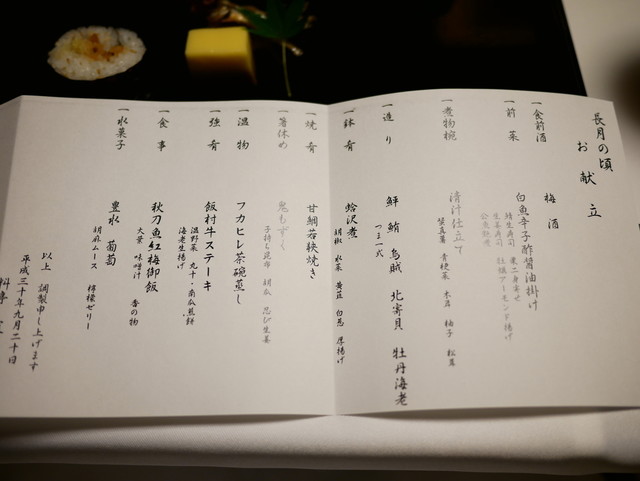 長月の頃
お献立
一食前酒
梅酒
一前菜
白魚辛子酢醤油掛け
鯖生寿司
生姜寿司 牡蠣アーモンド揚げ
一煮物椀
清汁仕立て
蟹真薯 青梗菜 木茸 柚子 松茸
一造り
鮃 鮪 烏賊 北寄貝 牡丹海老
つま一式
一鉢肴
蛤沢煮
胡椒 水菜 黄韮 白葱 厚揚げ
一焼肴
甘鯛若狭焼き
一箸休め
鬼もずく
子持ち昆布 胡瓜 忍び生姜
一温物
フカヒレ茶碗蒸し
一強肴
飯村牛ステーキ
温野菜 丸十・南瓜煎餅
海老生揚げ
一食事
秋刀魚紅梅御飯
大葉 味噌汁 香の物
一水菓子
豊水 葡萄
胡麻ムース 檸檬ゼリー
以上 調製申し上げます
平成三十年九月二十日
料亭